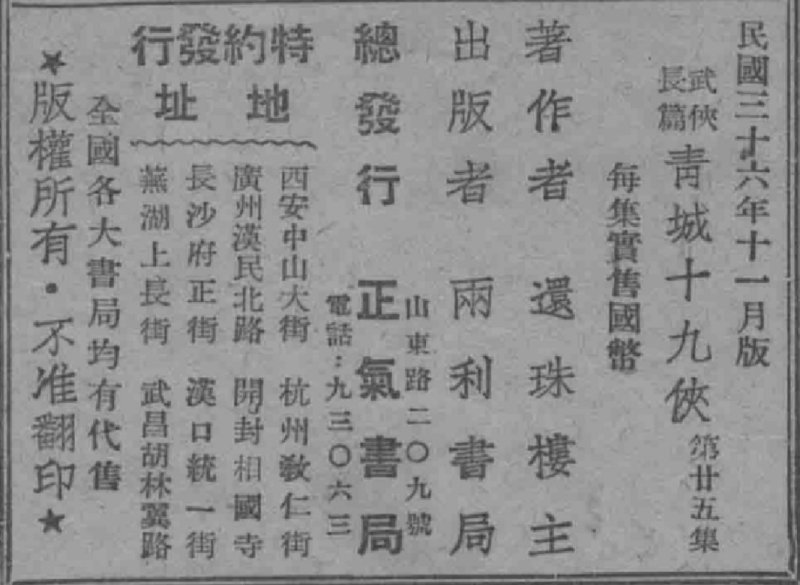 民國三十六年十一月版
武俠長篇 青城十九俠 第廿五集
每集實售國幣
著作者 還珠樓主
出版者 兩利書局
山東路二〇九號
總發行 正氣書局
電話：九三〇六三
特約發行
地址
西安中山大街 杭州教仁街
廣州漢民北路 開封相國寺
長沙府正街 漢口統一街
蕪湖上長街 武昌胡林翼路
全國各大書局均有代售
★版權所有・不准翻印★